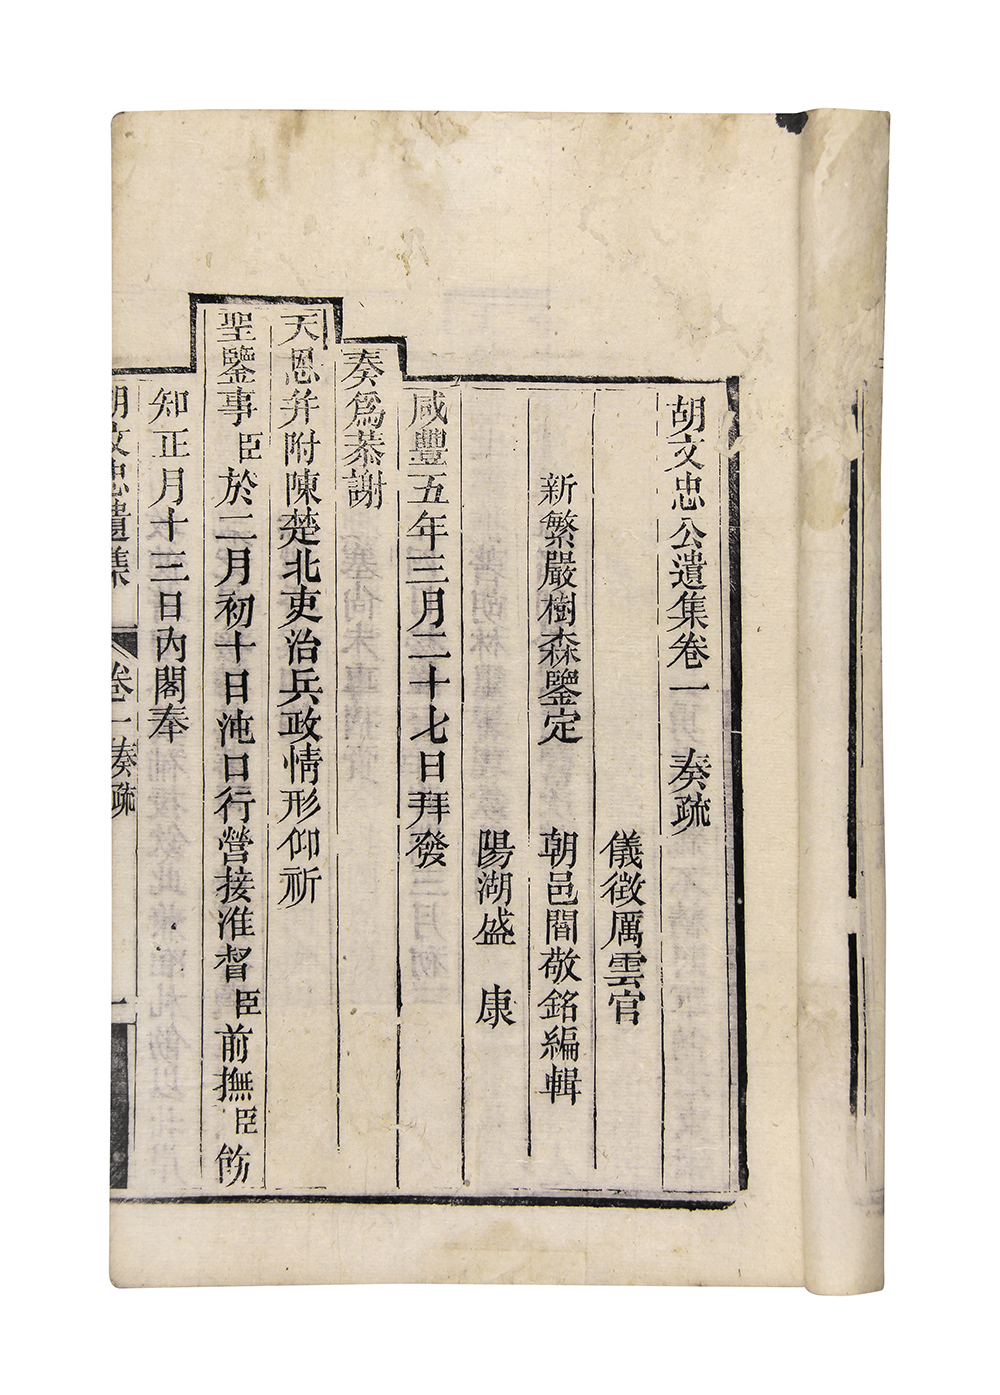 胡文忠公遺集卷一　奏疏
儀徵厲雲官
新繁嚴樹森鑒定　朝邑閻敬銘編輯
陽湖盛　康
咸豐五年三月二十七日拜發
奏爲恭謝
天恩并附陳楚北吏治兵政情形仰祈
聖鑒事臣於二月初十日沌口行營接准督臣前撫臣飭
知正月十三日內閣奉
胡文忠遺集　卷一奏疏　一